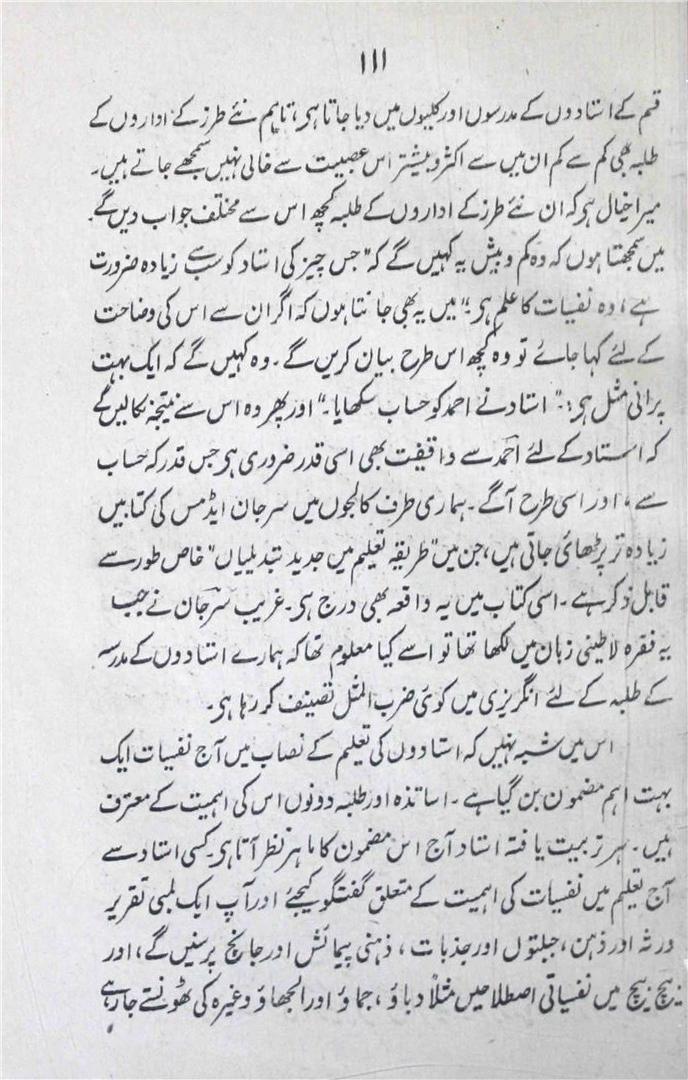 ۱۱۱
قسم کے استادوں کے مدرسوں اور کلیوں میں دیا جاتا ہی، تاہم نئے طرز کے اداروں کے
طلبہ بھی کم سے کم ان میں سے اکثر و بیشتر اس عصبیت سے خالی نہیں سمجھے جاتے ہیں۔
میرا خیال ہی کہ ان نئے طرز کے اداروں کے طلبہ کچھ اس سے مختلف جواب دیں گے۔
میں سمجھتا ہوں کہ وہ کم و بیش یہ کہیں گے کہ "جس چیز کی استاد کو سب سے زیادہ ضرورت
ہے، وہ نفسیات کا علم ہی"؛ میں یہ بھی جانتا ہوں کہ اگر ان سے اس کی وضاحت
کے لئے کہا جائے تو وہ کچھ اس طرح بیان کریں گے۔ وہ کہیں گے کہ ایک بہت
پرانی مثل ہی:۔ "استاد نے احمد کو حساب سکھایا۔" اور پھر وہ اس سے نتیجہ نکالیں گے
کہ استاد کے لئے احمد سے واقفیت بھی اسی قدر ضروری ہی جس قدر کہ حساب
سے، اور اسی طرح آگے۔ ہماری طرف کالجوں میں سر جان ایڈمس کی کتابیں
زیادہ تر پڑھائی جاتی ہیں، جن میں "طریقہ تعلیم میں جدید تبدیلیاں" خاص طور سے
قابل ذکر ہے۔ اسی کتاب میں یہ واقعہ بھی درج ہی۔ غریب سرجان نے جب
یہ فقرہ لاطینی زبان میں لکھا تھا تو اسے کیا معلوم تھا کہ ہمارے استادوں کے مدرسہ
کے طلبہ کے لئے انگریزی میں کوئی ضرب المثل تصنیف کر رہا ہی۔
اس میں شبہ نہیں کہ استادوں کی تعلیم کے نصاب میں آج نفسیات ایک
بہت اہم مضمون بن گیا ہے۔ اساتذہ اور طلبہ دونوں اس کی اہمیت کے معترف
ہیں۔ ہر تربیت یافتہ استاد آج اس مضمون کا ماہر نظر آتا ہی۔ کسی استاد سے
آج تعلیم میں نفسیات کی اہمیت کے متعلق گفتگو کیجئے اور آپ ایک لمبی تقریر
ورثہ اور ذہن، جبلتوں اور جذبات، ذہنی پیمائش اور جانچ پر سنیں گے، اور
بیچ بیچ میں نفسیاتی اصطلاحیں مثلاً دباؤ، جماؤ اور الجھاؤ وغیرہ کی ٹھونستے جا رہے